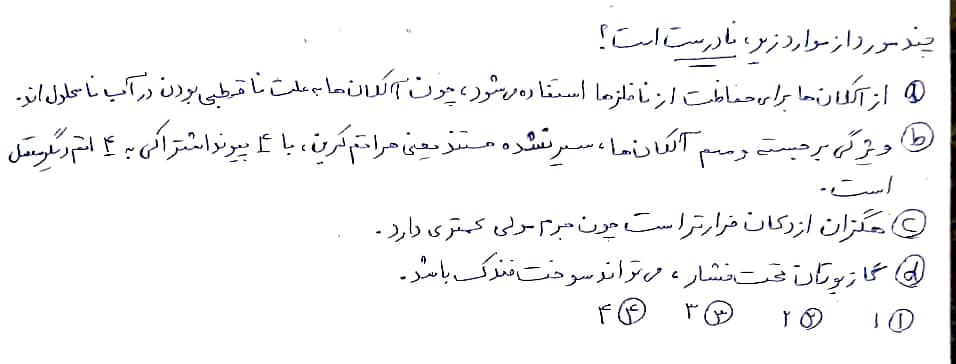 چند مورد از موارد زیر، نادرست است؟
a از آلکان‌ها برای حفاظت از نافلزها استفاده می‌شود، چون آلکان‌ها به علت ناقطبی بودن در آب نامحلول‌اند.
b ویژگی برجسته و مهم آلکان‌ها، سیر نشده هستند یعنی هر اتم کربن، با ۴ پیوند اشتراکی به ۴ اتم دیگر متصل
است.
c هگزان از دکان فرارتر است چون جرم مولی کمتری دارد.
d گاز بوتان تحت فشار، می‌تواند سوخت فندک باشد.
۱ ۱ ۲ ۲ ۳ ۳ ۴ ۴